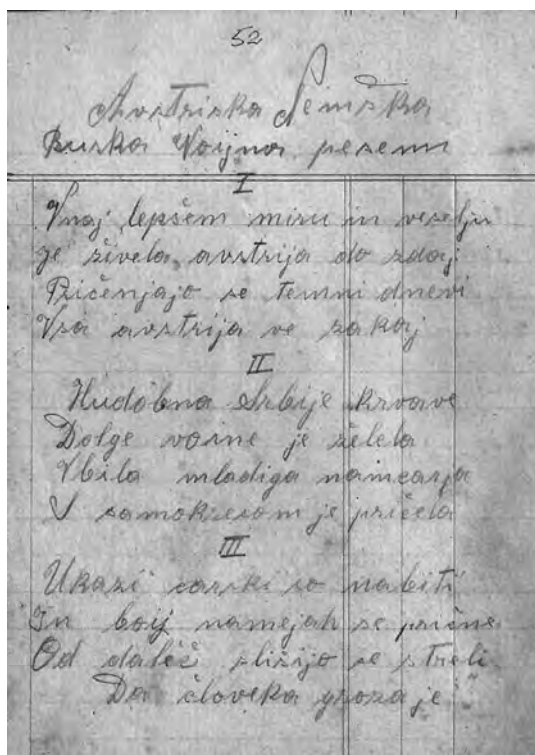 52
Avstriska Nemška
Ruska Voijna pesem
I
Vnaj lepšem miru in veselju
je živela avstrija do zdaj
Pričenjajo se temni dnevi
Vsa avstrija ve zakaj
II
Hudobna Srbije krvave
Dolge vojne je želela
Vbila mladiga
V samokresom je pričela
III
Ukazi carski so nabiti
In boij namejah se prične
Od daleč slišijo se streli
Da človeka groza je